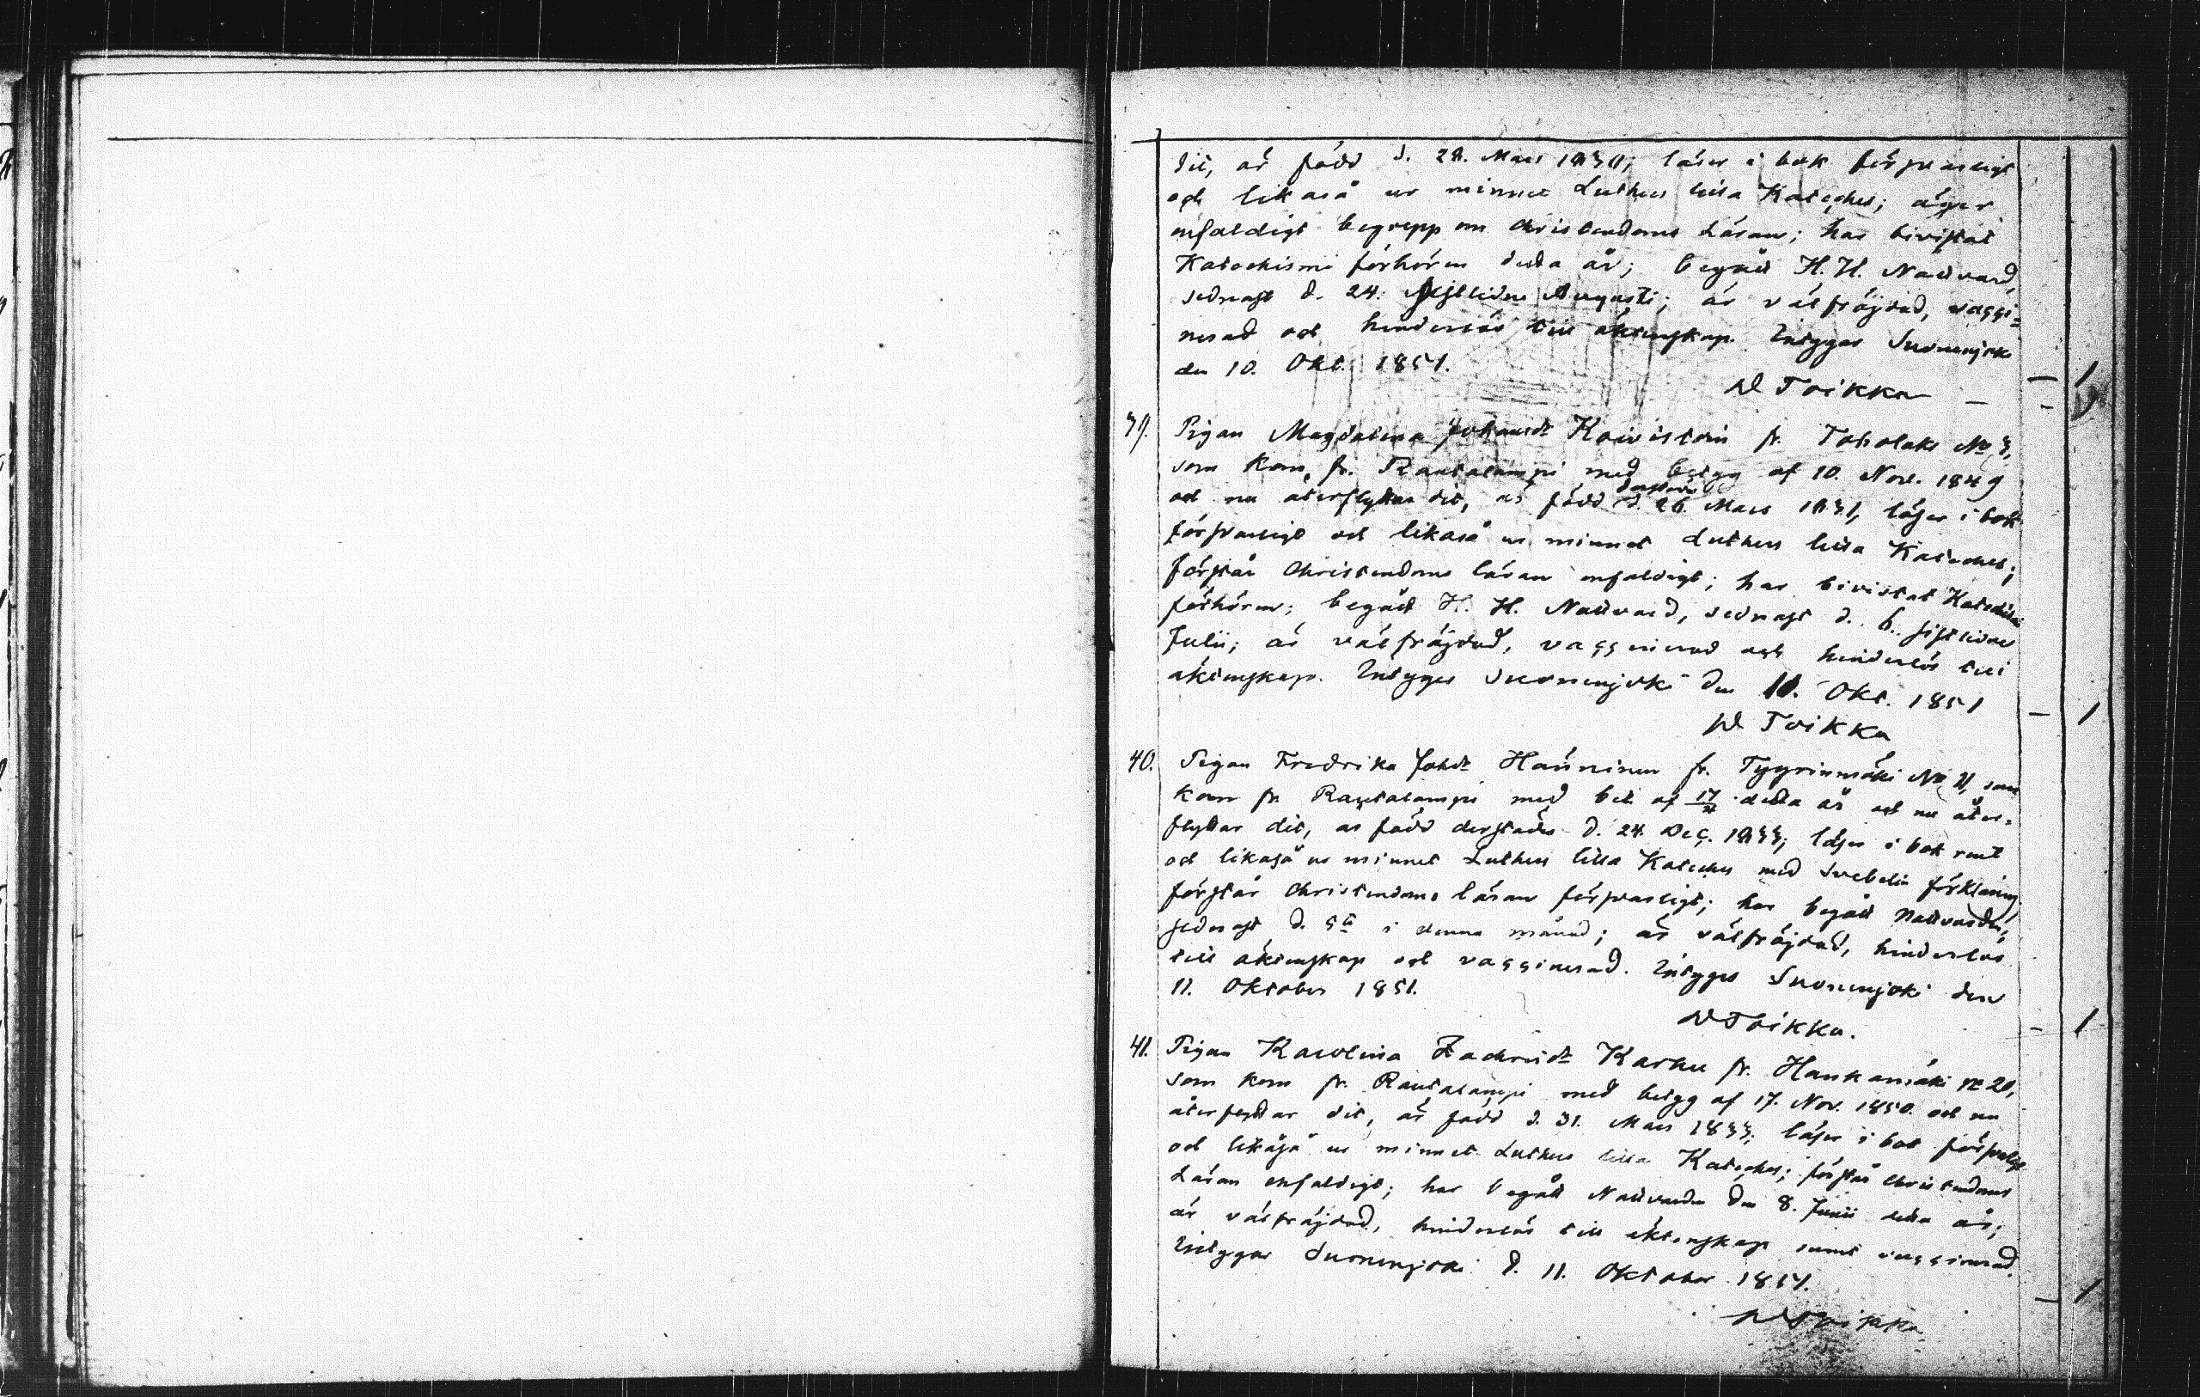 dit, är född d. 28. Mars 1830; läser i bok försvarligt
och likaså ur minnet Luthers lilla Kateches; äger
enfaldigt begrepp om Christendoms Läran; har bivistat
Katechismi förhören detta år; begått H. H. Nattvard,
sednast d. 24. sistlidne Augusti; är välfräjdad, vacci=
nerad och hinderlös till äktenskap. Intygar Suonenjoki
den 10. Okt. 1851.
W Toikka — 1
39. Pigan Magdalena Johansdr Koivistoin fr. Toholaks No 3,
som kom fr. Rautalampi med betyg af 10. Nov. 1849
och nu återflyttar dit, är född derstädes d. 26. Mars 1831, läser i bok
försvarligt och likaså ur minnet Luthers lilla Kateches;
förstår Christendoms läran enfaldigt; har bivistat Katechismi
förhören; begått H. H. Nattvard, sednast d. 6. sistlidne
Julii; är välfräjdad, vaccinerad och hinderlös till
äktenskap. Intygar Suonenjoki den 11. Okt. 1851
W Toikka — 1
40. Pigan Fredrika Johdr Hänninen fr. Tyyrinmäki No 11, som
kom fr. Rautalampi med bet. af detta år och nu åter=
flyttar dit, är född derstädes d. 24. Dec. 1833; läser i bok rent
och likaså ur minnet Luthers lilla Kateches med Svebelii förklaring,
förstår Christendoms läran försvarligt; har begått Nattvarden,
sednast d. 5te i denna månad; är välfräjdad, hinderlös
till äktenskap och vaccinerad. Intygar Suonenjoki den
11. Oktober 1851.
W Toikka. — 1
41. Pigan Karolina Zachrisdr Karhu fr. Hankamäki No 20,
som kom fr. Rautalampi med betyg af 17. Nov. 1850. och nu
återflyttar dit, är född d. 31. Mars 1833; läser i bok försvarligt
och likaså ur minnet Luthers lilla Kateches; förstår Christendoms
Läran enfaldigt; har begått Nattvarden den 8. Junii detta år;
är välfräjdad, hinderlös till äktenskap samt vaccinerad.
Intygar Suonenjoki d. 11. Oktober 1851.
W Toikka — 1